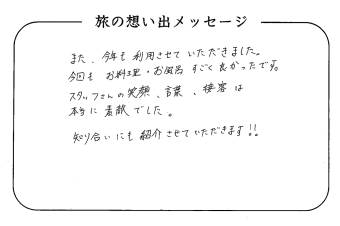 旅の想い出メッセージ
また、今年も利用させていただきました。
今回もお料理・お風呂すごく良かったです。
スタッフさんの笑顔、言葉、接客は
本当に素敵でした。
知り合いにも紹介させていただきます!!